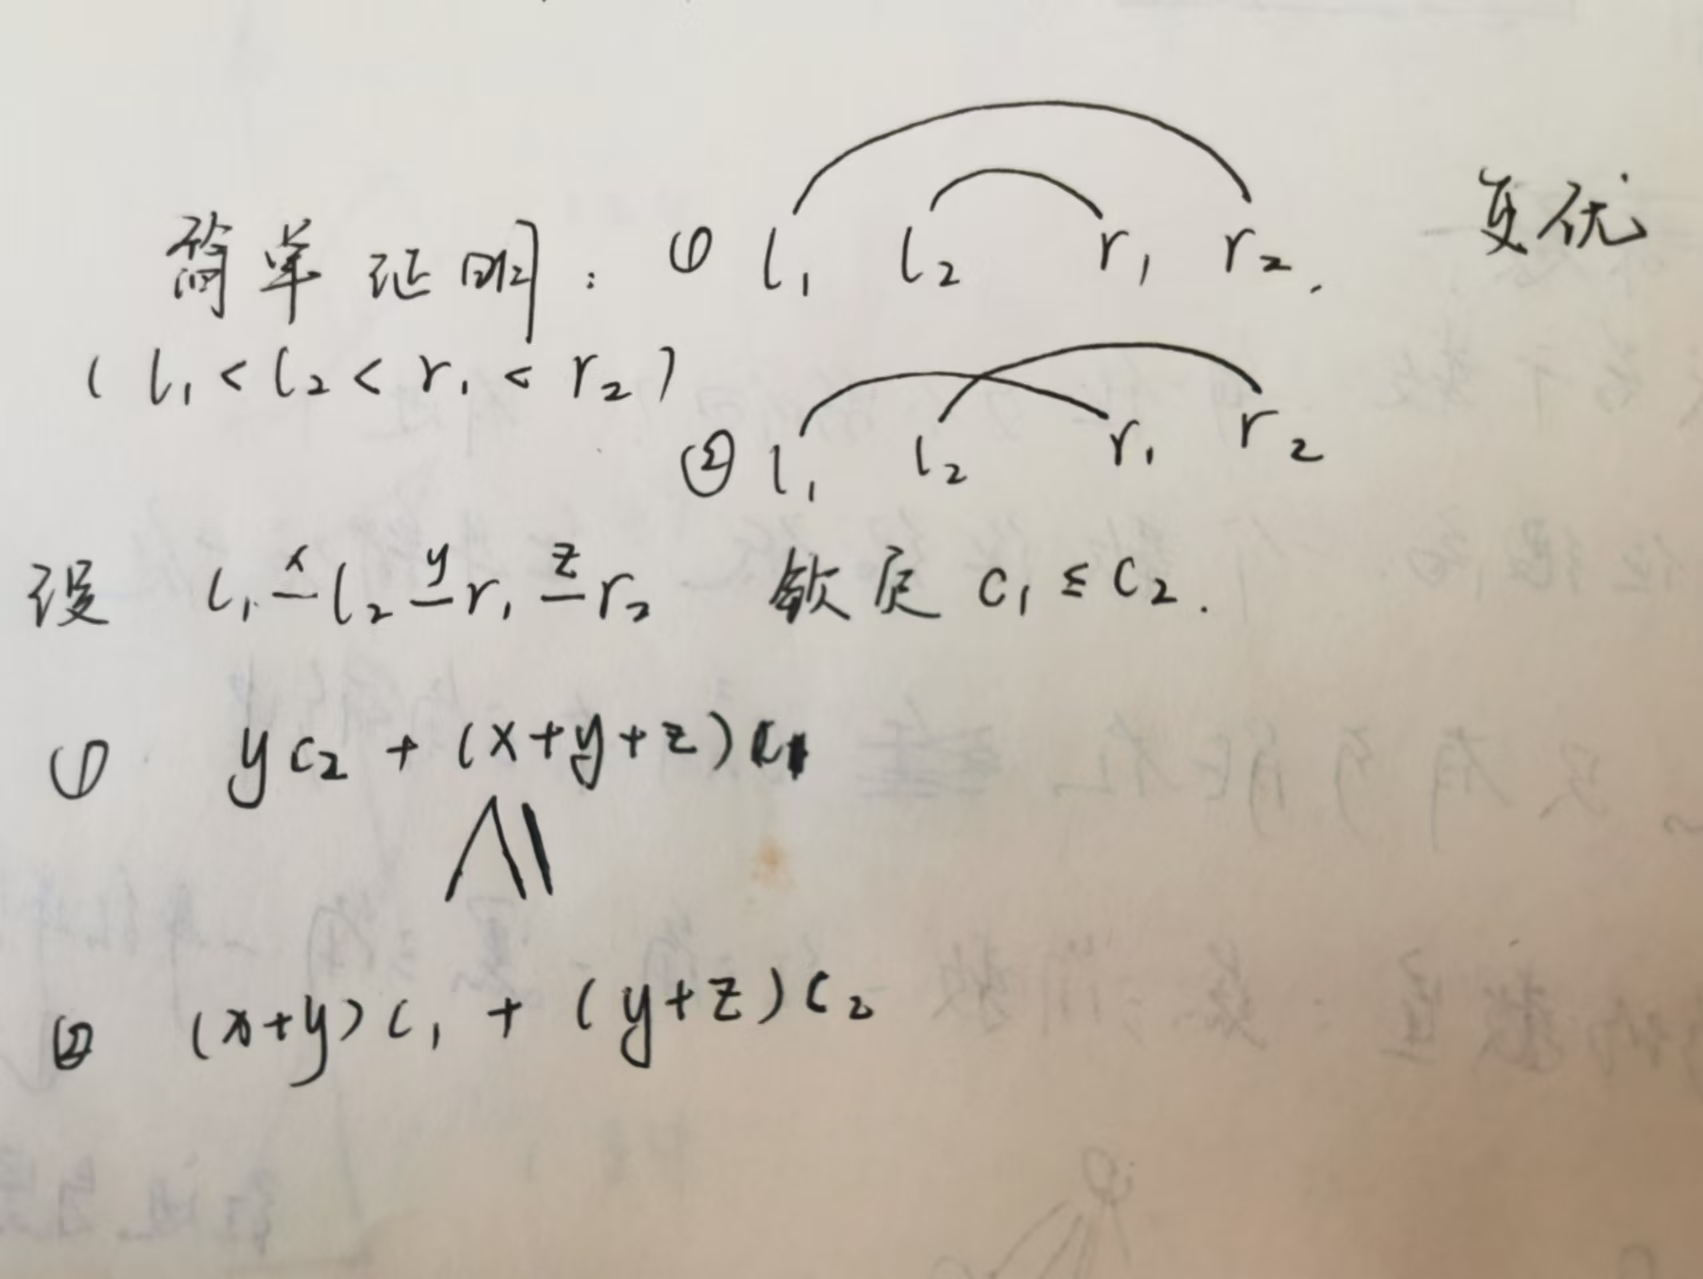 简单证明: ① l₁ l₂ r₁ r₂. 更优
(l₁<l₂<r₁<r₂)
② l₁ l₂ r₁ r₂
设 l₁ x l₂ y r₁ z r₂ 钦定 c₁≤c₂.
① yc₂+(x+y+z)c₁
≤
② (x+y)c₁+(y+z)c₂